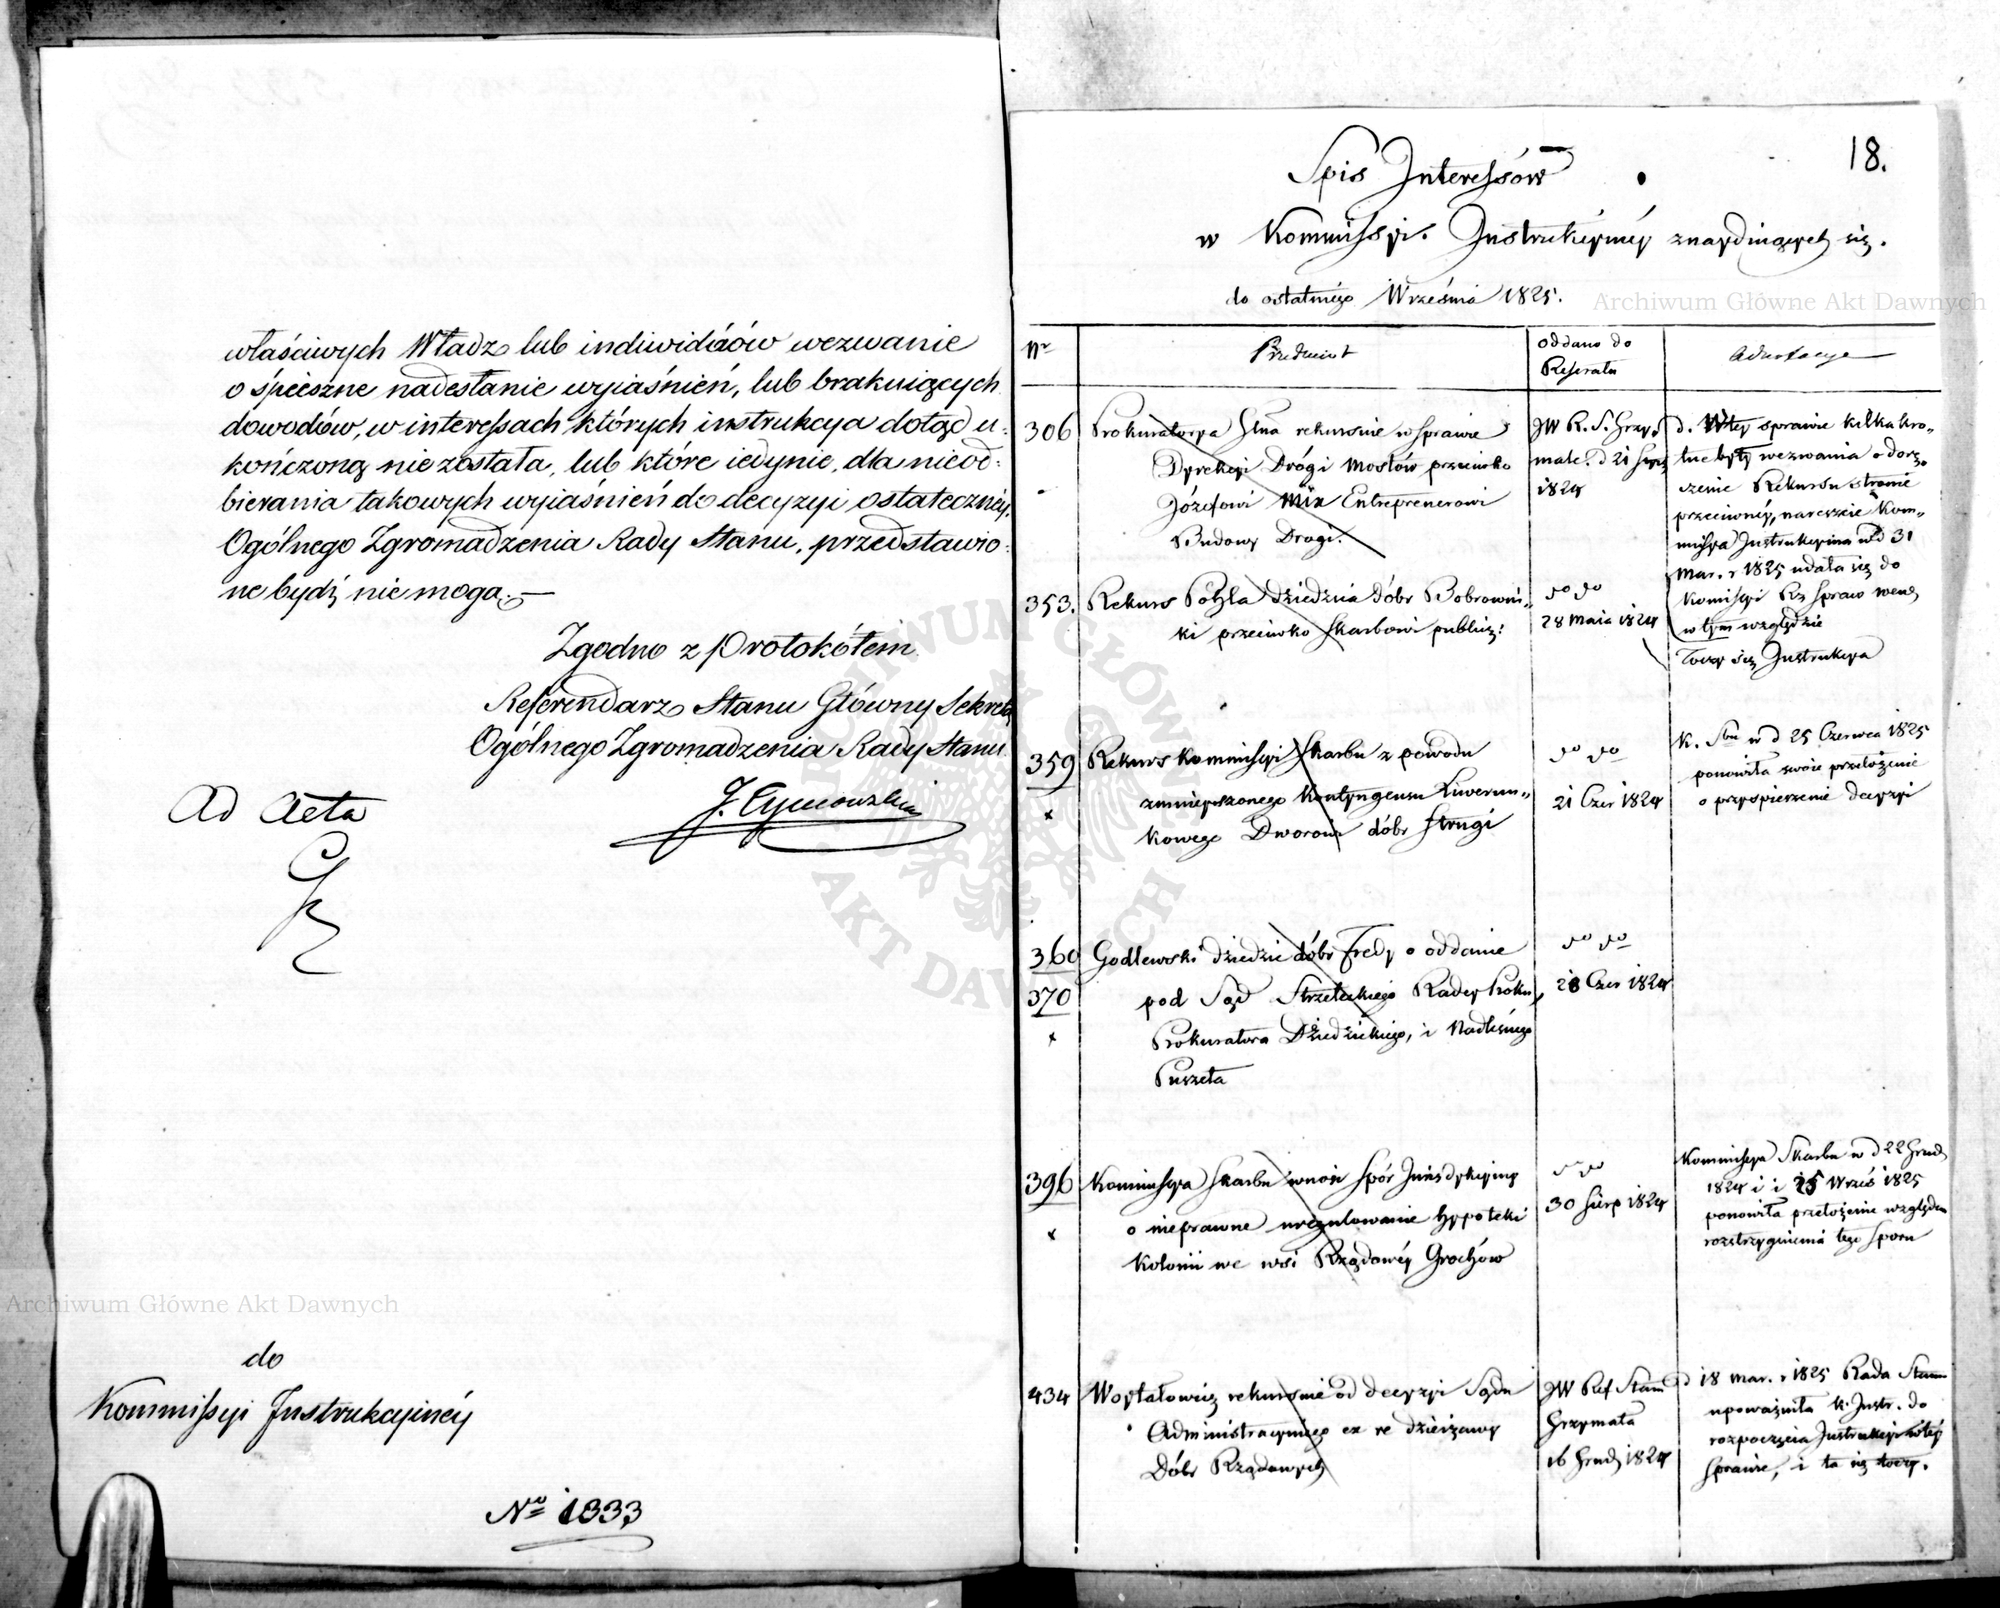 właściwych Władz lub indiwiduów wezwanie
o śpieszne nadesłanie wyiaśnień, lub brakuiących
dowodów, w interessach których instrukcya dotąd u=
kończoną nie została, lub które iedynie, dla nieod=
bierania takowych wyiaśnień do decyzyi ostateczney
Ogólnego Zgromadzenia Rady Stanu, przedstawio=
ne bydź nie mogą.—
Zgodno z Protokółem
Referendarz Stanu Główny Sekret
Ogólnego Zgromadzenia Rady Stanu
Ad Acta
do
Kommissyi Instrukcyinéy
No 1333
18.
Spis Interessów
w Kommissyi Instrukcyinéy znayduiących się.
do ostatniego Września 1825.
Nr
Przedmiot
oddano do
Referatu
Adnotacye
306
Prokuratorya Jlna rekursuie w sprawie
Dyrekcyi Dróg i Mostów przeciwko
Józefowi Mix Entreprenerowi
Budowy Drogi.
JW R. S. Grzy=
1824
d. W tey sprawie kilkakro=
tne były wezwania o dorę=
czenie Rekursu stronie
przeciwnéy, nareszcie Kom=
missya Instrukcyina w d 31
Mar. r 1825 udała się do
Komissyi Rz Spraw wew,
w tym względzie
353.
Rekurs Pohla dziedzica dóbr Bobrowni=
ki przeciwko Skarbowi publicz:
do do
28 Maia 1824
Toczy się Instrukcya
359
Rekurs Kommissyi Skarbu z powodu
zmnieyszonego Kontyngensu Liwerun=
kowego Dworowi dóbr Strugi
do do
21 Czer 1824
K. Sbu w d 25 Czerwca 1825
ponowiła swoie przełożenie
o przyspieszenie decyzyi
360
370
Godlewski dziedzic dóbr Fredy o oddanie
pod Sąd Strzeleckiego Radcy Proku,
Prokuratora Dziedzickiego, i Nadleśnego
Puszeta
do do
28 Czer 1824
396
Kommissya Skarbu wnosi spór Jurisdykcyiny
o nieprawne uregulowanie hypoteki
Kolonii we wsi Rządowéy Grochów
do do
30 Sierp 1824
Kommissya Skarbu w d 22 Grud,
1824 i i 25 Wrześ 1825
ponowiła przełożenie względem
rozstrzygnienia tego sporu
434
Woytałowicz rekursuie od decyzyi Sądu
Administracyinego ex re dzierżawy
Dóbr Rządowych
JW Ref Stanu
Grzymała
16 Grud, 1824
d 18 Mar. r 1825 Rada Stanu
upoważniła K. Instr. do
rozpoczęcia Instrukcyi w téy
Sprawie, i ta się toczy.
Archiwum Główne Akt Dawnych
Archiwum Główne Akt Dawnych
ARCHIWUM GŁÓWNE AKT DAWNYCH